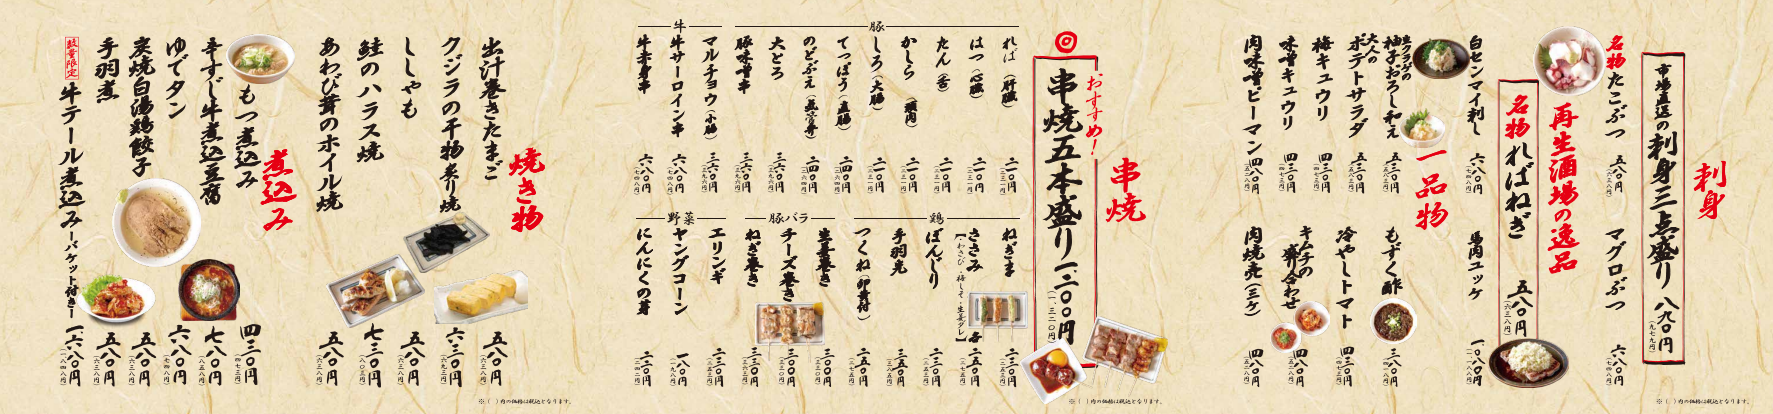 刺身
市場直送の刺身三点盛り 八九〇円
（九七九円）
名物たこぶつ 五八〇円
（六三八円）
マグロぶつ 六八〇円
（七四八円）
再生酒場の逸品
名物ればねぎ 五八〇円
（六三八円）
白センマイ刺し 六八〇円
（七四八円）
馬肉ユッケ 一、〇八〇円
一品物
生クラゲの
柚子おろし和え 五三〇円
（五八三円）
大人の
ポテトサラダ 五三〇円
（五八三円）
梅キュウリ 四三〇円
（四七三円）
味噌キュウリ 四三〇円
（四七三円）
肉味噌ピーマン 四八〇円
（五二八円）
もずく酢 三八〇円
冷やしトマト 四三〇円
キムチの
盛り合わせ 四八〇円
（五二八円）
肉焼売（三ケ） 四八〇円
（五二八円）
※（ ）内の価格は税込となります。
串焼
おすすめ！
串焼五本盛り 一、二〇〇円
（一、三二〇円）
豚
れば（肝臓） 二一〇円
（二三一円）
はつ（心臓） 二一〇円
（二三一円）
たん（舌） 二一〇円
（二三一円）
かしら（頭肉） 二一〇円
（二三一円）
しろ（大腸） 二一〇円
（二三一円）
てっぽう（直腸） 二四〇円
（二六四円）
のどぶえ（気管等） 二四〇円
（二六四円）
大とろ 三六〇円
（三九六円）
豚味噌串 三六〇円
（三九六円）
牛
マルチョウ（小腸） 三六〇円
（三九六円）
牛サーロイン串 六八〇円
（七四八円）
牛赤身串 六八〇円
（七四八円）
鶏
ねぎま 二三〇円
（二五三円）
ささみ
【わさび・梅しそ・生姜ダレ】 各二五〇円
（二七五円）
ぼんじり 二三〇円
（二五三円）
手羽先 二五〇円
（二七五円）
つくね（卵黄付） 二五〇円
（二七五円）
豚バラ
生姜巻き 三〇〇円
（三三〇円）
チーズ巻き 三〇〇円
（三三〇円）
ねぎ巻き 三三〇円
（三六三円）
野菜
エリンギ 二三〇円
（二五三円）
ヤングコーン 一八〇円
（一九八円）
にんにくの芽 二二〇円
（二四二円）
※（ ）内の価格は税込となります。
焼き物
出汁巻きたまご 五八〇円
（六三八円）
クジラの干物炙り焼 六三〇円
（六九三円）
ししゃも 五八〇円
（六三八円）
鮭のハラス焼 七三〇円
（八〇三円）
あわび茸のホイル焼 五八〇円
（六三八円）
煮込み
もつ煮込み 四三〇円
（四七三円）
辛すじ牛煮込豆腐 七八〇円
（八五八円）
ゆでタン 六八〇円
（七四八円）
炭焼白湯鶏餃子 五八〇円
（六三八円）
手羽煮 五八〇円
（六三八円）
数量限定
牛テール煮込み ーバケット付きー 一、六八〇円
（一、八四八円）
※（ ）内の価格は税込となります。